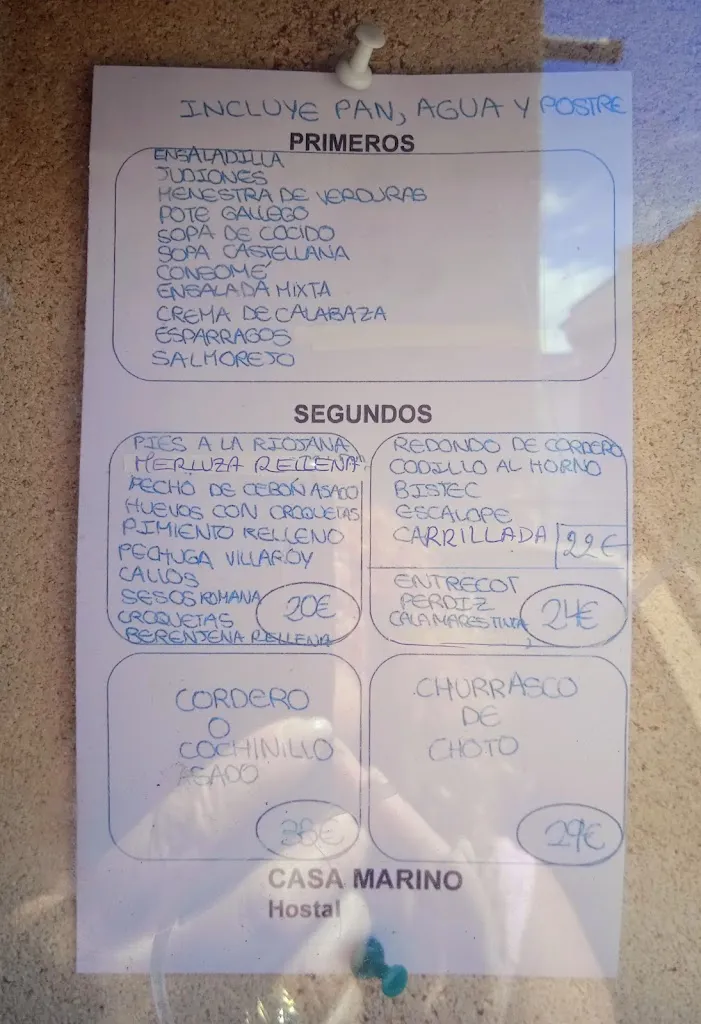 INCLUYE PAN, AGUA Y POSTRE
PRIMEROS
ENSALADILLA
JUDIONES
MENESTRA DE VERDURAS
POTE GALLEGO
SOPA DE COCIDO
SOPA CASTELLANA
CONSOMÉ
ENSALADA MIXTA
CREMA DE CALABAZA
ESPARRAGOS
SALMOREJO
SEGUNDOS
PIES A LA RIOJANA
MERLUZA RELLENA
PECHO DE CEBON ASADO
HUEVOS CON CROQUETAS
PIMIENTO RELLENO
PECHUGA VILLAROY
CALLOS
SESOS ROMANA
CROQUETAS
BERENJENA RELLENA
20€
REDONDO DE CORDERO
CODILLO AL HORNO
BISTEC
ESCALOPE
CARRILLADA 22€
ENTRECOT
PERDIZ
CALAMARES TINTA
24€
CORDERO
O
COCHINILLO
ASADO
38€
CHURRASCO
DE
CHOTO
29€
CASA MARINO
Hostal